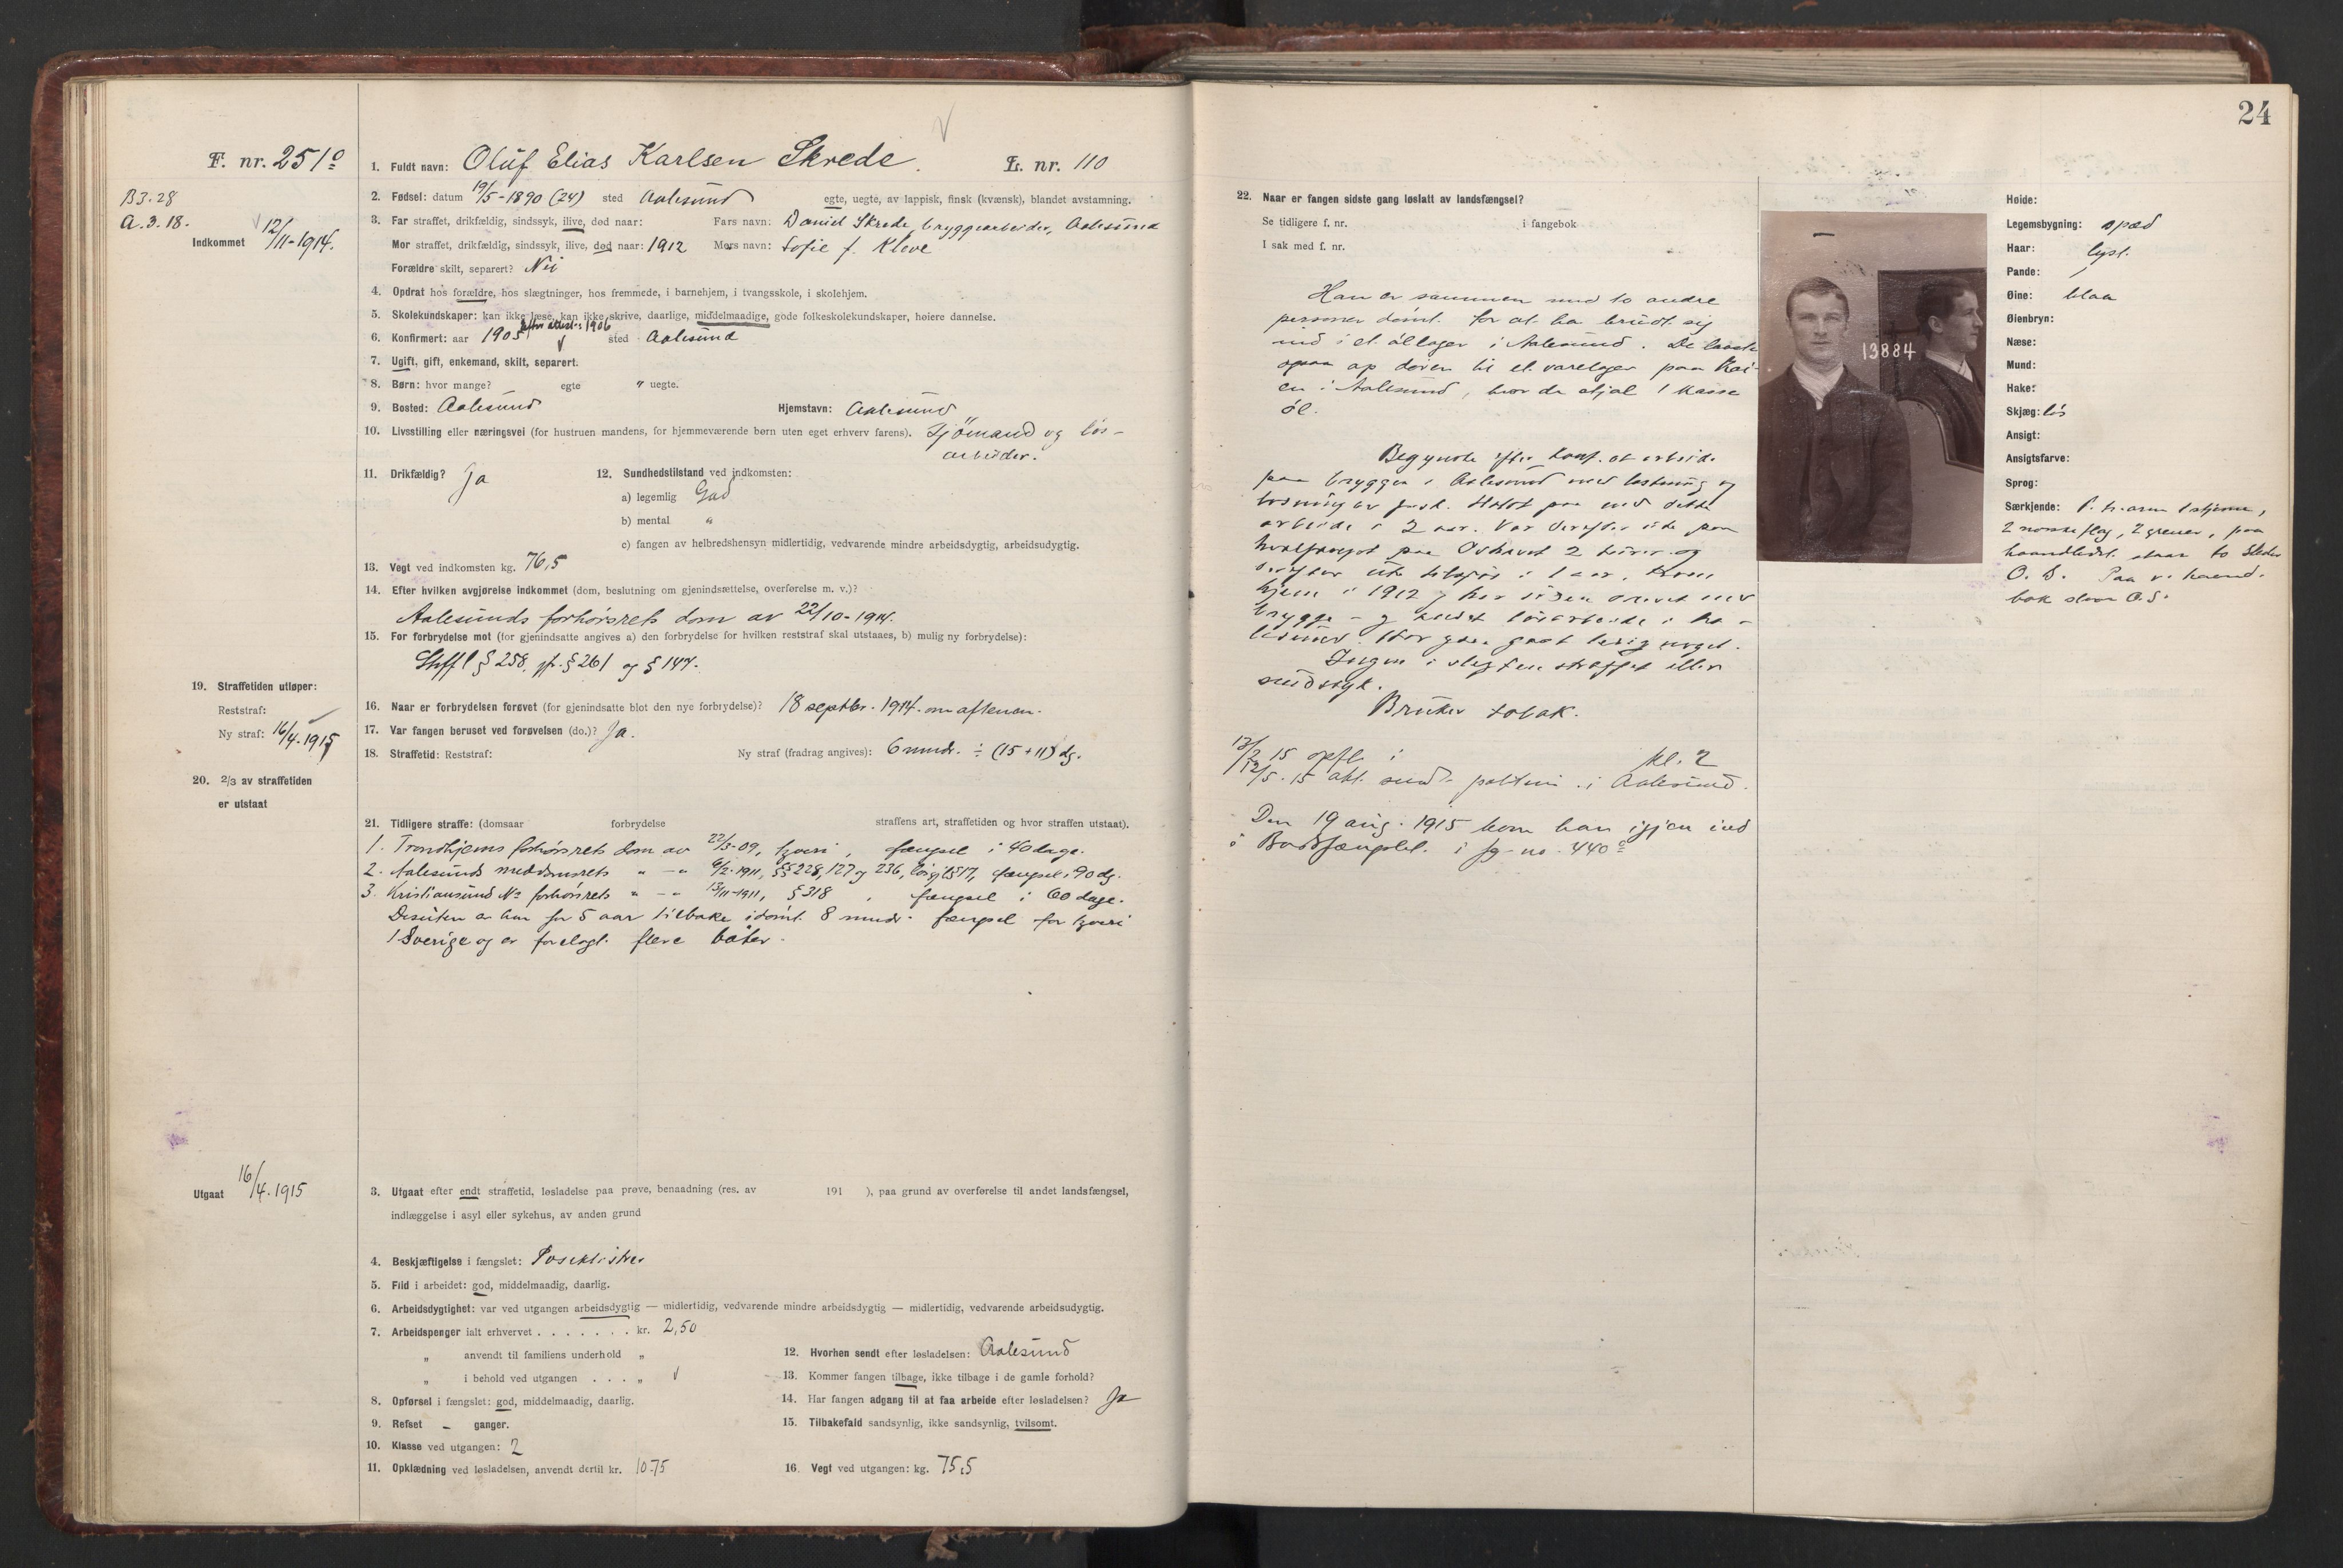 24
F. nr. 251º
1. Fuldt navn: Oluf Elias Karlsen Skrede. L. nr. 110
B3.28
A.3.18.
Indkommet 12/11-1914.
2. Fødsel: datum 19/5-1890 (24) sted Aalesund egte, uegte, av lappisk, finsk (kvænsk), blandet avstamning.
3. Far straffet, drikfældig, sindssyk, ilive, død naar: Fars navn: Daniel Skrede, bryggearbeider, Aalesund
Mor straffet, drikfældig, sindssyk, ilive, død naar: 1912 Mors navn: Sofie f. Kleve
Forældre skilt, separert? Nei
4. Opdrat hos forældre, hos slægtninger, hos fremmede, i barnehjem, i tvangsskole, i skolehjem.
5. Skolekundskaper: kan ikke læse, kan ikke skrive, daarlige, middelmaadige, gode folkeskolekundskaper, høiere dannelse.
efter attest: 1906
6. Konfirmert: aar 1905 sted Aalesund
7. Ugift, gift, enkemand, skilt, separert.
8. Børn: hvor mange? egte " uegte.
9. Bosted: Aalesund Hjemstavn: Aalesund
10. Livsstilling eller næringsvei (for hustruen mandens, for hjemmeværende børn uten eget erhverv farens). Sjömand og løs-
arbeider.
11. Drikfældig? Ja 12. Sundhedstilstand ved indkomsten:
a) legemlig God
b) mental "
c) fangen av helbredshensyn midlertidig, vedvarende mindre arbeidsdygtig, arbeidsudygtig.
13. Vegt ved indkomsten kg. 76,5
14. Efter hvilken avgjørelse indkommet (dom, beslutning om gjenindsættelse, overførelse m. v.)?
Aalesunds forhørsrets dom av 22/10-1914.
15. For forbrydelse mot (for gjenindsatte angives a) den forbrydelse for hvilken reststraf skal utstaaes, b) mulig ny forbrydelse):
Strffl § 258, jfr. § 261 og § 147.
19. Straffetiden utløper:
Reststraf:
Ny straf: 16/4.1915
16. Naar er forbrydelsen forøvet (for gjenindsatte blot den nye forbrydelse)? 18 septbr. 1914. om aftenen.
17. Var fangen beruset ved forøvelsen (do.)? Ja.
18. Straffetid: Reststraf: Ny straf (fradrag angives): 6 mndr. ÷ (15+11) dg.
20. 2/3 av straffetiden
er utstaat
21. Tidligere straffe: (domsaar forbrydelse straffens art, straffetiden og hvor straffen utstaat).
1. Trondhjems forhørsrets dom av 22/3-09, tyveri, fængsel i 40 dage.
2. Aalesunds meddomsrets " - " 9/2-1911, §§ 228, 127 og 236, fængsel i 90 dg.
3. Kristiansund Nº forhørsrets " - " 13/11-1911, § 318, fængsel i 60 dage.
Desuten er han for 5 aar tilbake idömt 8 mndr. fængsel for tyveri
i Sverige og er forelagt flere bøter.
Utgaat 16/4.1915
3. Utgaat efter endt straffetid, løsladelse paa prøve, benaadning (res. av 191 ), paa grund av overførelse til andet landsfængsel,
indlæggelse i asyl eller sykehus, av anden grund
4. Beskjæftigelse i fængslet: Poseklistrer
5. Flid i arbeidet: god, middelmaadig, daarlig.
6. Arbeidsdygtighet: var ved utgangen arbeidsdygtig — midlertidig, vedvarende mindre arbeidsdygtig — midlertidig, vedvarende arbeidsudygtig.
7. Arbeidspenger ialt erhvervet . . . . . . . kr. 2,50
" anvendt til familiens underhold "
" i behold ved utgangen . . . "
8. Opførsel i fængslet: god, middelmaadig, daarlig.
9. Refset – ganger.
10. Klasse ved utgangen: 2
11. Opklædning ved løsladelsen, anvendt dertil kr. 10.75
12. Hvorhen sendt efter løsladelsen: Aalesund
13. Kommer fangen tilbage, ikke tilbage i de gamle forhold?
14. Har fangen adgang til at faa arbeide efter løsladelsen? Ja
15. Tilbakefald sandsynlig, ikke sandsynlig, tvilsomt.
16. Vegt ved utgangen: kg. 75,5
22. Naar er fangen sidste gang løslatt av landsfængsel?
Se tidligere f. nr. i fangebok
I sak med f. nr.
Han er sammen med to andre
personer dömt for at ha brudt sig
ind i et öllager i Aalesund. De
ogsaa op dören til et varelager paa Kai-
en i Aalesund, hvor de stjal 1 kasse
öl.
Begyndte efter konf. at arbeide
paa bryggen i Aalesund med lastning og
losning av Holdt paa med dette
arbeide i 2 aar. Var derefter ute paa
hvalfangst paa 2 turer og
derefter ute tilsjös i 1 aar. Kom
hjem i 1912 og har siden drevet med
brygge- og andet lösarbeide i Aa-
lesund. Har gaat ledig meget.
Ingen i slegten straffet eller
sindssyk.
Bruker tobak.
13/2 15 opfl. i kl. 2
12/5.15 akt. sendt politim. i Aalesund.
Den 19 aug. 1915 kom han igjen ind
i Bodsfængslet i fg. no. 440º
13884
Høide:
Legemsbygning: spæd
Haar: lyst.
Pande:
Øine: blaa
Øienbryn:
Næse:
Mund:
Hake:
Skjæg: lös
Ansigt:
Ansigtsfarve:
Sprog:
Særkjende: P. h. arm 1 stjerne,
2 norske flag, 2 grener, paa
haandledet staar to steder
O. S. Paa v. haand-
bak staar O.S.